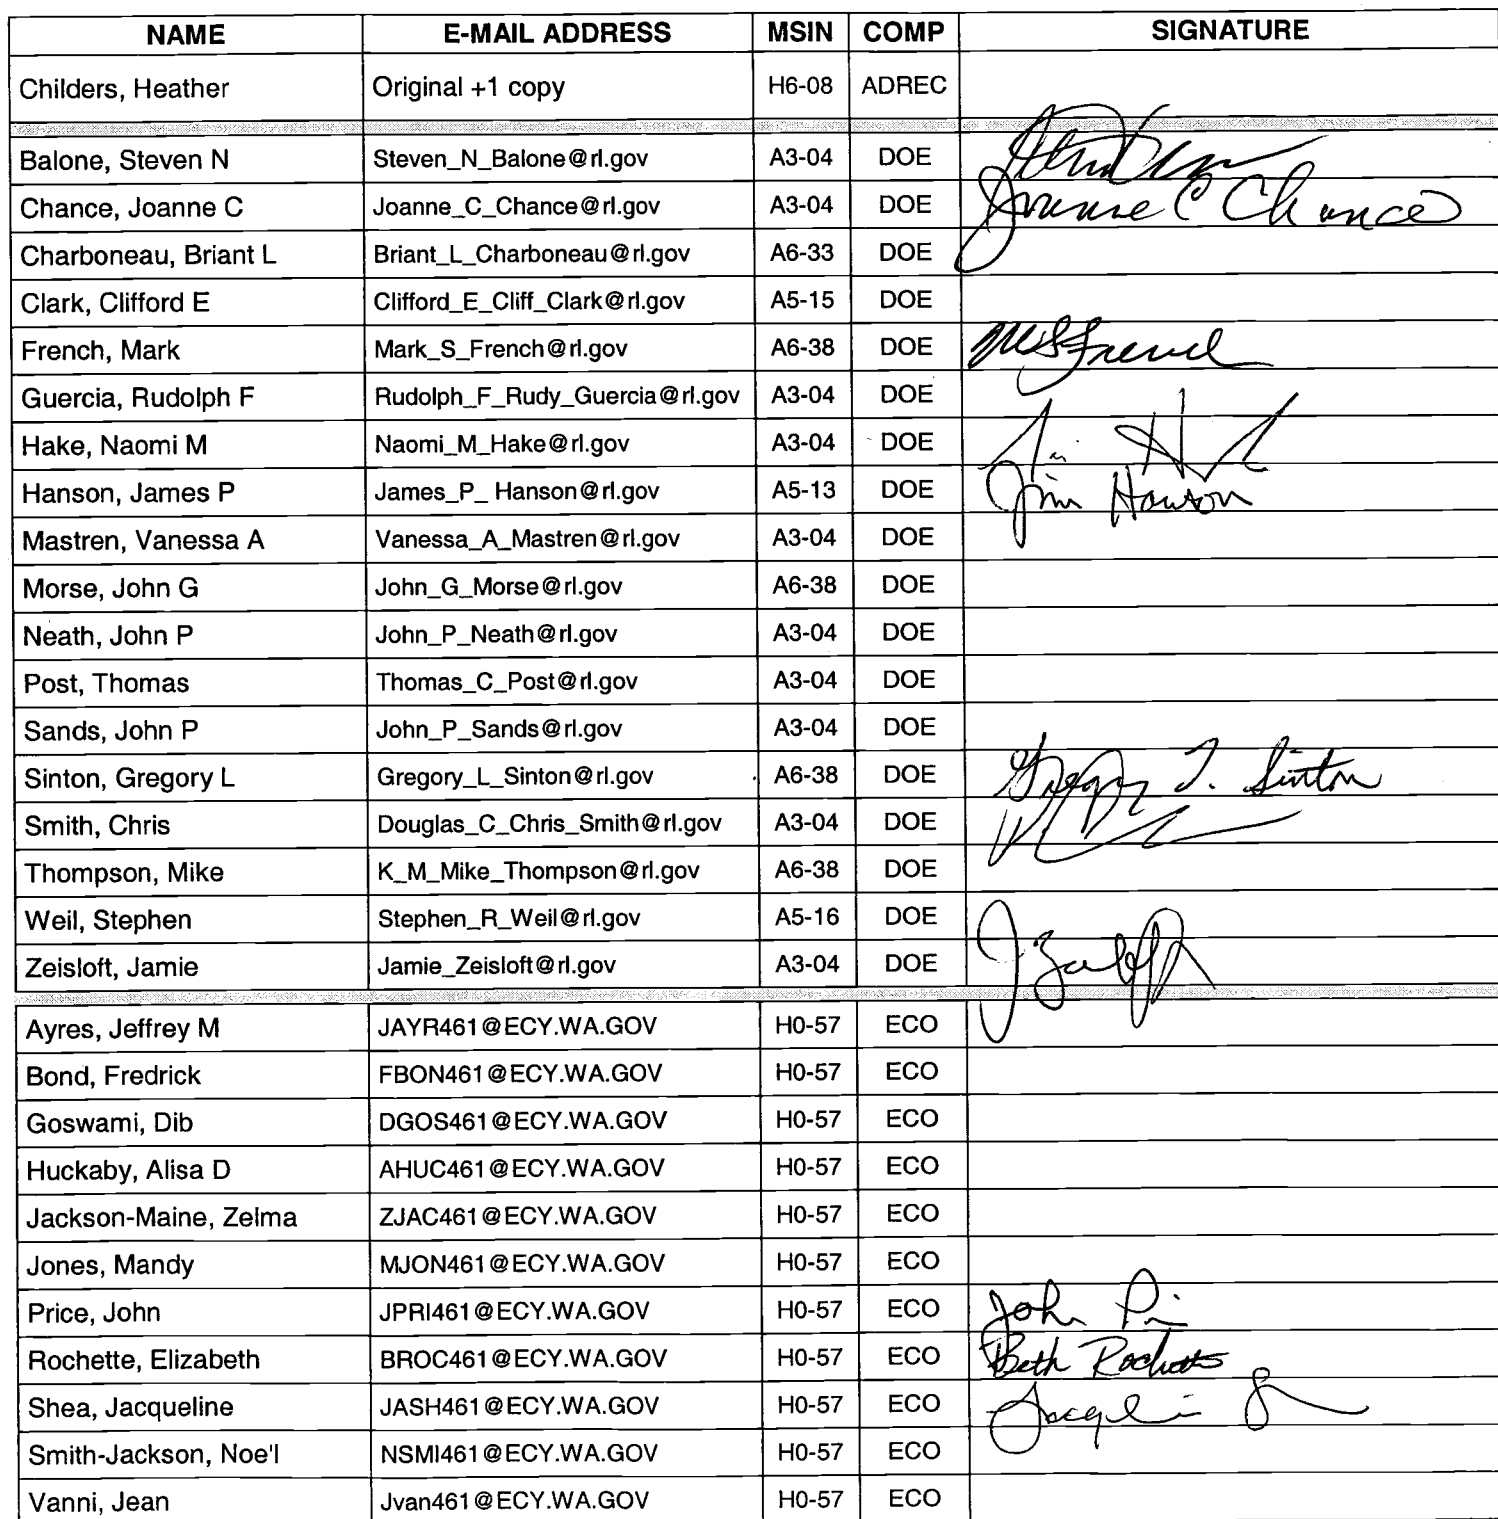 NAME E-MAIL ADDRESS MSIN COMP SIGNATURE
Childers, Heather Original +1 copy H6-08 ADREC
Balone, Steven N Steven_N_Balone@rl.gov A3-04 DOE
Chance, Joanne C Joanne_C_Chance@rl.gov A3-04 DOE Joanne C Chance
Charboneau, Briant L Briant_L_Charboneau@rl.gov A6-33 DOE
Clark, Clifford E Clifford_E_Cliff_Clark@rl.gov A5-15 DOE
French, Mark Mark_S_French@rl.gov A6-38 DOE MSFrench
Guercia, Rudolph F Rudolph_F_Rudy_Guercia@rl.gov A3-04 DOE
Hake, Naomi M Naomi_M_Hake@rl.gov A3-04 DOE
Hanson, James P James_P_ Hanson@rl.gov A5-13 DOE Jim Hanson
Mastren, Vanessa A Vanessa_A_Mastren@rl.gov A3-04 DOE
Morse, John G John_G_Morse@rl.gov A6-38 DOE
Neath, John P John_P_Neath@rl.gov A3-04 DOE
Post, Thomas Thomas_C_Post@rl.gov A3-04 DOE
Sands, John P John_P_Sands@rl.gov A3-04 DOE
Sinton, Gregory L Gregory_L_Sinton@rl.gov A6-38 DOE Gregory L. Sinton
Smith, Chris Douglas_C_Chris_Smith@rl.gov A3-04 DOE
Thompson, Mike K_M_Mike_Thompson@rl.gov A6-38 DOE
Weil, Stephen Stephen_R_Weil@rl.gov A5-16 DOE
Zeisloft, Jamie Jamie_Zeisloft@rl.gov A3-04 DOE
Ayres, Jeffrey M JAYR461@ECY.WA.GOV H0-57 ECO
Bond, Fredrick FBON461@ECY.WA.GOV H0-57 ECO
Goswami, Dib DGOS461@ECY.WA.GOV H0-57 ECO
Huckaby, Alisa D AHUC461@ECY.WA.GOV H0-57 ECO
Jackson-Maine, Zelma ZJAC461@ECY.WA.GOV H0-57 ECO
Jones, Mandy MJON461@ECY.WA.GOV H0-57 ECO
Price, John JPRI461@ECY.WA.GOV H0-57 ECO John Pri
Rochette, Elizabeth BROC461@ECY.WA.GOV H0-57 ECO Beth Rochette
Shea, Jacqueline JASH461@ECY.WA.GOV H0-57 ECO
Smith-Jackson, Noe'l NSMI461@ECY.WA.GOV H0-57 ECO
Vanni, Jean Jvan461@ECY.WA.GOV H0-57 ECO